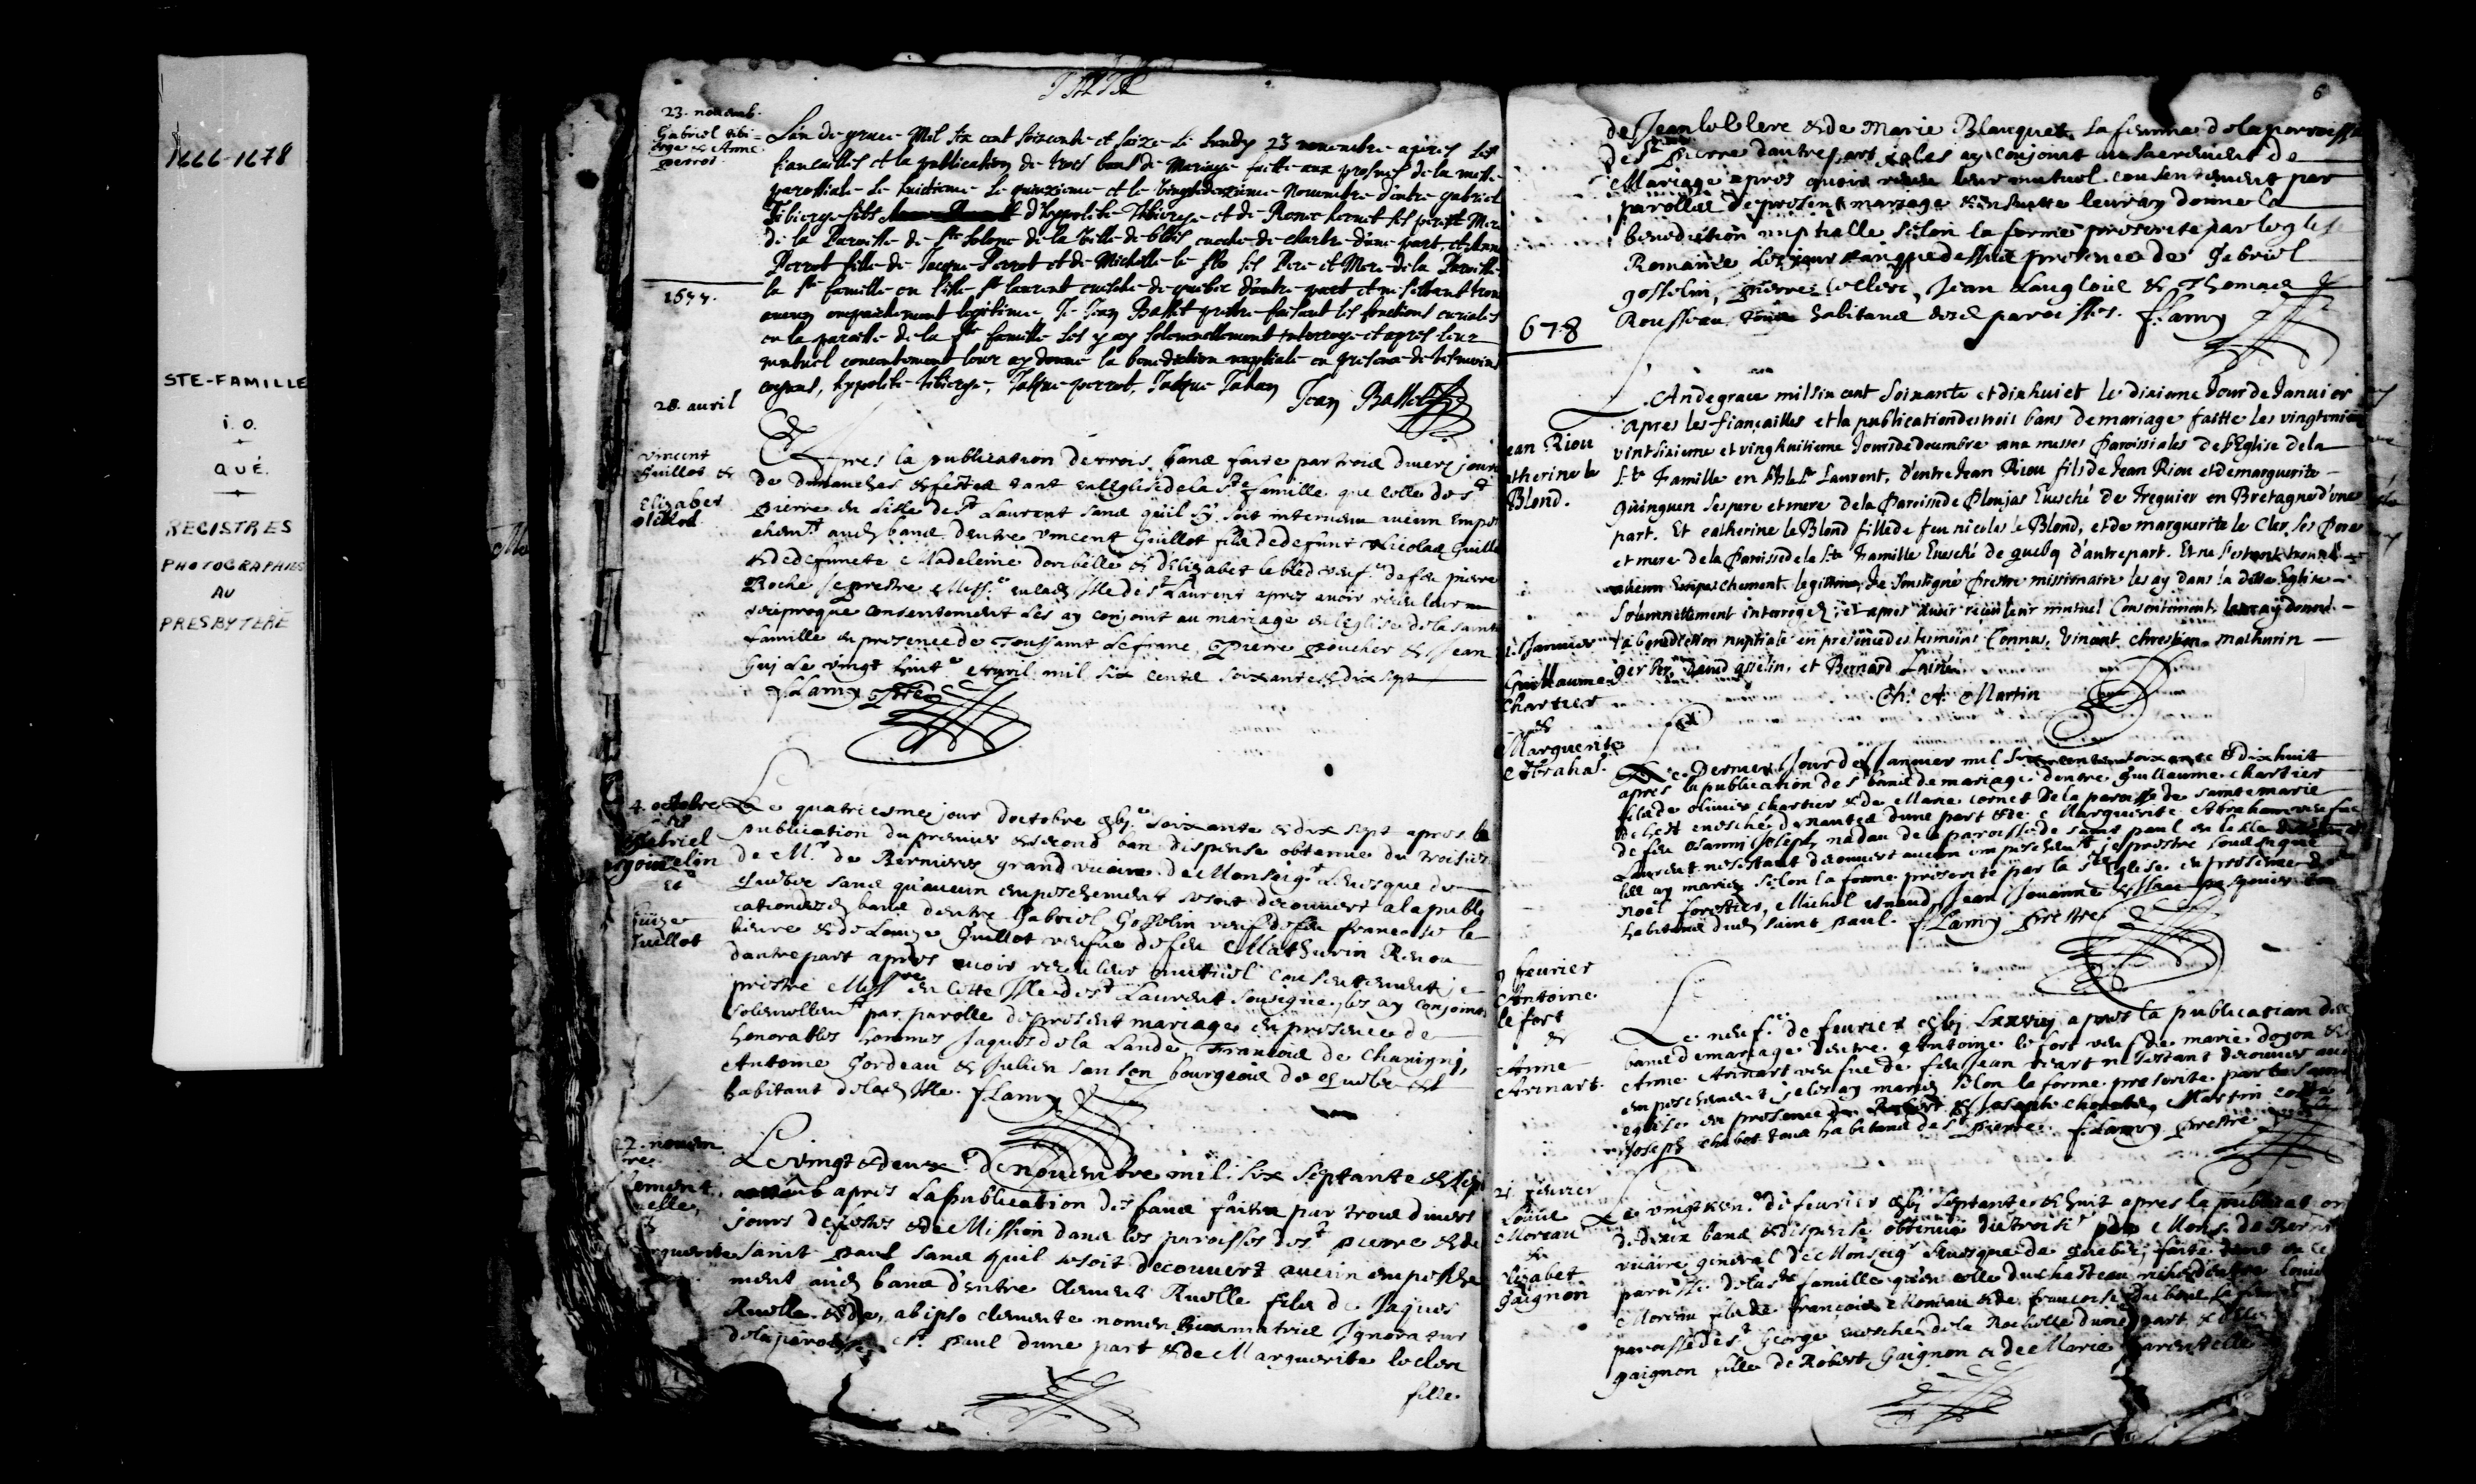 1666-1678
STE-FAMILLE
i. o.
QUÉ.
REGISTRES
PHOTOGRAPHIÉS
AU
PRESBYTERE
23. novemb.
Gabriel tibi-
erge & Anne
perrot
L'an de grace Mil six cent soixante et saize le lundy 23 novembre apres les
fiancailles et la publication de trois bans de Mariage faitte aux prosnes de la messe
paroissiale le huictieme le quinzieme et le vingtdeuxieme Novembre d'entre gabriel
Tibierge fils d'hypolite Thibierge et de Renee hervet ses pere et Mere
de la Paroisse de ste Solene de la ville de blois eveche de chartre d'une part, et Anne
Perrot fille de Jacque Perrot et de Michelle le flo ses Pere et Mere de la Paroisse
la ste famille en l'isle st laurent evesche de quebec d'autre part et ne s'estant trouvé
aucun empeschement legitime, Je Jean Basset prestre faisant les fonctions curiales
en la paroisse de la ste famille les y ay solemnellement interroge et apres leur
mutuel consentement leur ay donne la benediction nuptiale en presence de tesmoins
cognus, hypolite tibierge, Jacque perrot, Jacque Jahan
Jean Basset
1677.
28. avril
vincent
Guillot &
Elizabet
Apres la publication de trois bans faite par trois divers jours
de dimanches & festes tant en l'Eglise de la ste famille que celle de st
pierre en l'isle de st Laurent sans qu'il sy soit intervenu aucun empes
chemt aud bans d'entre vincent Guillot fils de defunt Nicolas Guillot
& de defuncte Madeleine doribelle & d'Elizabet le bled veufe de feu pierre
Roche je prestre Misse en lad Isle de st Laurent apres avoir receu leur
reciproque consentement les ay conjoint au mariage en l'eglise de la sainte
famille en presence de Toussaint Lefranc, Pierre Boucher & Jean
Guj le vingt huite avril mil six cents soixante & dix sept
f Lamy
4. octobre
Gabriel
gosselin
et
Guillot
Le quatriesme jour d'octobre soixante & dix sept apres la
publication du premier & second ban dispense obtenue du troisie
de Mr de Bernieres grand vicaire de Monseigr L'evesque de
quebec sans qu'aucun empeschement se soit decouvert a la publi
cation desd bans d'entre Gabriel Gosselin veuf de feu francoise le
lievre & de Louyse Guillot veufve de feu Mathurin Renou
d'autre part apres avoir receu leur mutuel consentement je
prestre Missre en cette Isle de st Laurent sousigne les ay conjoint
solemnellemt par parolle de present mariage en presence de
honorables hommes Jaques de la Lande, Francois de Chavigny,
Antoine Gordeau & Julien sanson bourgeois de quebec &
habitant de lad Isle. f Lamy
22. novem
re
lement
uelle,
&
rguerite
Le vingt & deuxe de Novembre mil six septante & sept
apres La publication des bans faitte par trois divers
jours de festes & de Mission dans les paroisses de st pierre & de
saint paul sans quil se soit decouvert aucun empesche
ment aud bans d'entre Clement Ruelle fils de Jaques
Ruelle & de, ab ipso clemente nomen matris Ignoratur
de la paroisse St paul d'une part & de Marguerite leclerc
fille.
6
de Jean leclerc & de Marie Blanquet sa femme de la parroisse
de St Pierre dautre part, je les ay conjoint au sacrement de
Mariage apres avoir receu leur mutuel consentement par
parolles de present mariage & ensuitte leur ay donne la
benediction nuptialle selon la forme prescrite par leglise
Romaine les jour & an que dessus en presence de Gabriel
gosselin, pierre leclerc, Jean Langlois & Thomas
Rousseau, tous habitans desd paroisses. f. Lamy
678
ean Riou
atherine le
Blond.
L'An de grace mil six cent soixante et dix huict le dixieme Jour de Janvier
apres les fiançailles et la publication des trois bans de mariage faitte les vingtunieme
vintsixieme et vinghuitieme Jours de decembre aux messes Paroissiales de l'Eglise de la
Ste Famille en l'Isle St Laurent. d'entre Jean Riou fils de Jean Riou et de marguerite
quinguen ses pere et mere de la Paroisse de Ploujas Evesché de Treguier en Bretagne d'une
part. Et catherine le Blond fille de feu nicolas le Blond, et de marguerite le Cler, ses Pere
et mere de la Paroisse de la Ste Famille Evesché de quebeq d'autre part. Et ne s'estant trouvé
aucun Empeschement legitime, Je soussigné Prestre missionaire les ay dans la ditte Eglise
solemnellement interrogez, et apres avoir receu leur mutuel Consentement, leur ay donné
la benediction nuptiale en presence des temoins Connus, Vincent Chrestien mathurin
Gerber David asselin, et Bernard Lainé.
Ch. A. Martin
Janvier
Guillaume
Chartier
&
Marguerite
Abraham
Le Dernier Jour de Janvier mil six cents soixante & dix huit
apres la publication des bans de mariage d'entre Guillaume chartier
fils de olivier chartier & de Marie cornet de la paroisse de sainte marie
evesché de nantes dune part & de Marguerite Abraham veufue
de feu osanny Joseph nadau de la paroisse de saint paul en lisle
Laurent ne sestant decouvert aucun empeschemt je prestre sousigne
les ay mariez selon la forme prescrite par la ste Eglise en presence de
Noel forestier, Michel esnaud, Jean Jouanne &
habitans dud saint paul. f Lamy prestre
9 feurier
Antoine
le fort
&
Anne
Arinart.
Le neufe de feurier apres la publication des
bans de mariage dentre Antoine le fort veuf de marie doyon &
Anne Arinart veufue de feu Jean ne sestant decouvert aucun
empeschement je les ay mariez selon la forme prescrite par la sainte
eglise en presence de Martin
Joseph chabot tous habitans de St pierre. f. Lamy prestre
21. feurier
Louis
Moreau
&
Elizabet
Gaignon
Le vingt & un de feurier septante & huit apres la publication
de deux bans & dispense obtenue du troisie par Mons. de Berni
vicaire general de Monseigr l'evesque de quebec, faite tant en ce
paroisse de la ste famille qu'en celle du chasteau richer d'entre Louis
Moreau fils de francois Moreau & de francoise
paroisse de st George evesché de la Rochelle dune part & d'Elis
gaignon fille de Robert Gaignon & de Marie parentelle